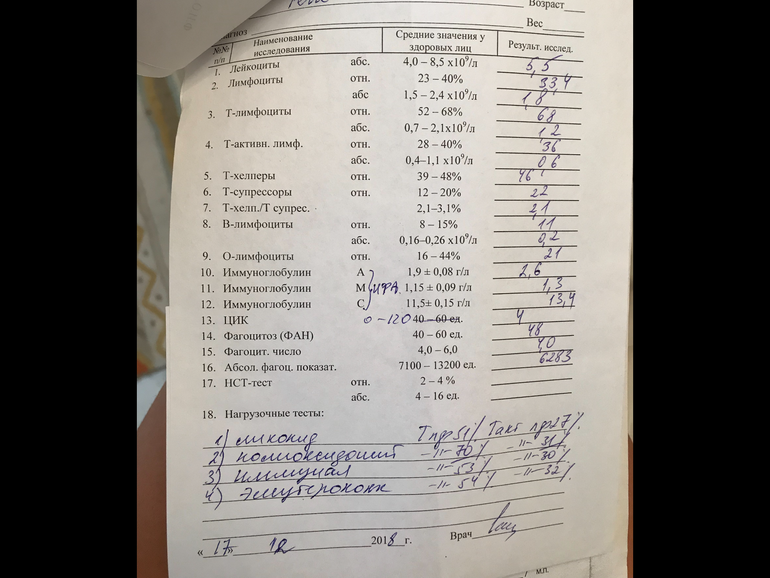 Возраст
Вес
№№ п/п Наименование исследования Средние значения у здоровых лиц Результ. исслед.
1. Лейкоциты абс. 4,0 – 8,5 х10⁹/л 5,5
2. Лимфоциты отн. 23 – 40% 33,4
абс 1,5 – 2,4 х10⁹/л 1,8
3. Т-лимфоциты отн. 52 – 68% 68
абс. 0,7 – 2,1х10⁹/л 1,2
4. Т-активн. лимф. отн. 28 – 40% 36
абс. 0,4–1,1 х10⁹/л 0,6
5. Т-хелперы отн. 39 – 48% 46
6. Т-супрессоры отн. 12 – 20% 22
7. Т-хелп./Т супрес. 2,1–3,1% 2,1
8. В-лимфоциты отн. 8 – 15% 11
абс. 0,16–0,26 х10⁹/л 0,2
9. О-лимфоциты отн. 16 – 44% 21
10. Иммуноглобулин А 1,9 ± 0,08 г/л 2,6
11. Иммуноглобулин М ИФА 1,15 ± 0,09 г/л 1,3
12. Иммуноглобулин С 11,5± 0,15 г/л 13,4
13. ЦИК 0–120 40 – 60 ед. 4
14. Фагоцитоз (ФАН) 40 – 60 ед. 48
15. Фагоцит. число 4,0 – 6,0 4,0
16. Абсол. фагоц. показат. 7100 – 13200 ед. 6283
17. НСТ-тест отн. 2 – 4 %
абс. 4 – 16 ед.
18. Нагрузочные тесты:
1) ликопид Тлф 51% Такт лф 27%
2) полиоксидоний –"– 70% –"– 31%
3) Иммунал –"– 53% –"– 30%
4) Элеутерококк –"– 54% –"– 32%
«17» 12 2018 г. Врач
м.п.